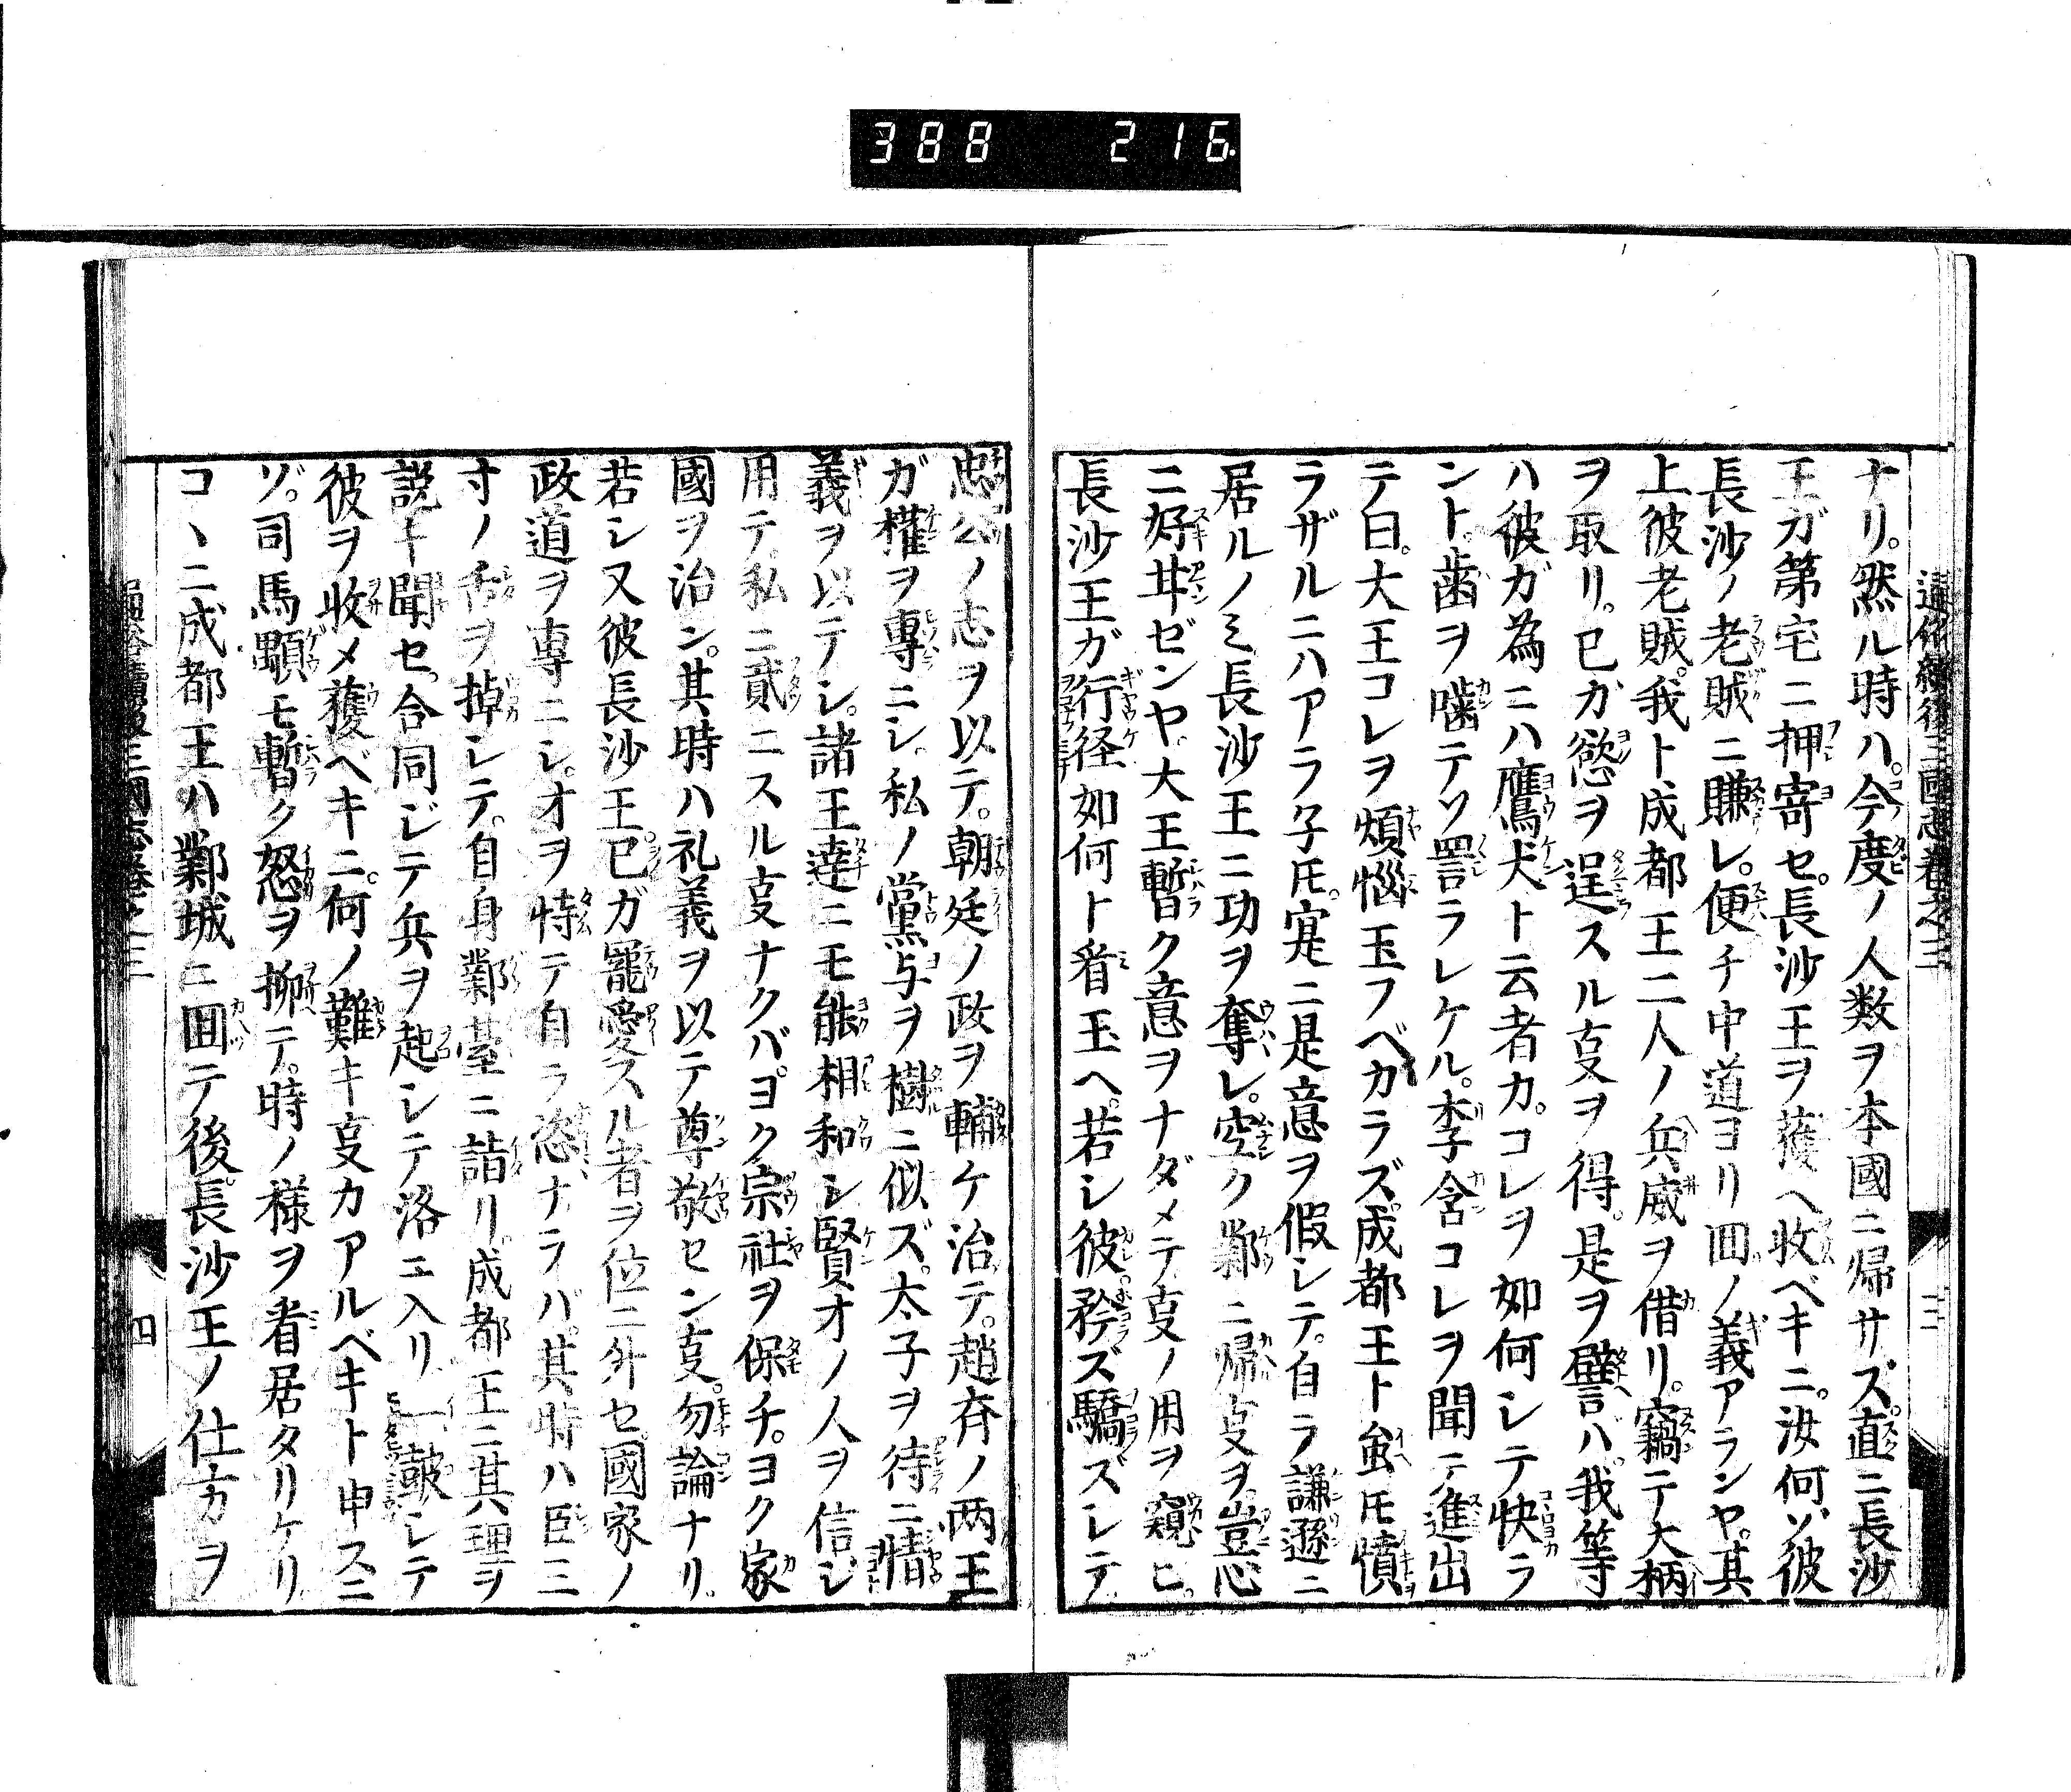 388 216
通俗續後三國志卷之三
ナリ。然ル時ハ。今度ノ人数ヲ本國ニ帰サズ。直ニ長沙
王ガ第宅ニ押寄セ。長沙王ヲ獲ヘ收ベキニ。汝何ゾ彼
長沙ノ老賊ニ賺レ。便チ中道ヨリ回ノ義アランヤ。其
上彼老賊。我ト成都王二人ノ兵威ヲ借リ。竊テ大柄
ヲ取リ。已ガ慾ヲ逞スル叓ヲ得。是ヲ譬ハ。我等
ハ彼ガ為ニハ鷹犬ト云者カ。コレヲ如何シテ快ラ
ント。歯ヲ噛テソ詈ラレケル。李含コレヲ聞テ進出
テ曰。大王コレヲ煩惱玉フベカラズ。成都王ト虽𪜈憤
ラザルニハアラ子𪜈。寔ニ是意ヲ假シテ。自ラ謙遜ニ
居ルノミ長沙王ニ功ヲ奪レ。空ク鄴ニ帰叓ヲ。豈心
ニ好丼ゼンヤ。大王暫ク意ヲナダメテ叓ノ用ヲ窺ヒ。
長沙王ガ行径如何ト看玉ヘ。若シ彼矜ズ驕ズシテ。
三
忠公ノ志ヲ以テ。朝廷ノ政ヲ輔ケ治テ。趙斉ノ両王
ガ權ヲ專ニシ。私ノ黨与ヲ樹ニ似ズ。太子ヲ待ニ情
義ヲ以テシ。諸王達ニモ能相和シ賢オノ人ヲ信ジ
用テ。私ニ貳ニスル叓ナクバ。ヨク宗社ヲ保チ。ヨク家
國ヲ治ン。其時ハ礼義ヲ以テ尊敬セン叓。勿論ナリ。
若シ又彼長沙王。已ガ寵愛スル者ヲ位ニ舛セ。國家ノ
政道ヲ專ニシ。オヲ恃テ自ラ恣ナラバ。其時ハ臣三
寸ノ舌ヲ掉シテ。自身鄴臺ニ詣リ。成都王ニ其理ヲ
説キ聞セ。合同ジテ兵ヲ起シテ洛ニ入リ。一鼓シテ
彼ヲ收メ獲ベキニ。何ノ難キ叓カアルベキト申スニ
ゾ。司馬顒モ暫ク怒ヲ抑テ。時ノ様ヲ看居タリケリ
コヽニ成都王ハ鄴城ニ囬テ後。長沙王ノ仕方ヲ
通俗續後三國志卷之三
四